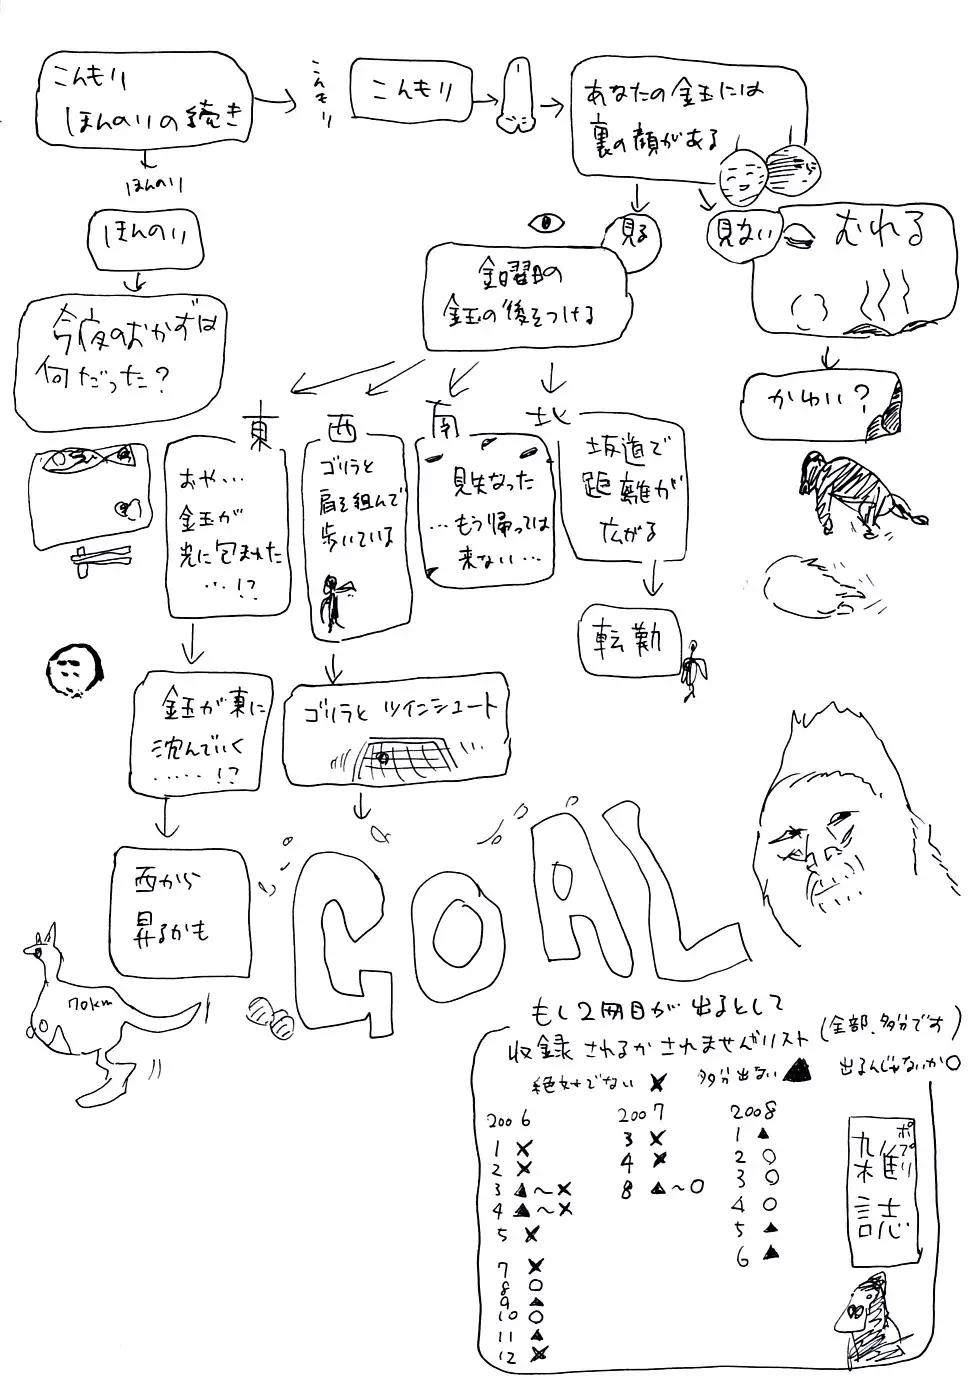 こんもり
ほんのりの続き
こんもり
こんもり
あなたの金玉には
裏の顔がある
ほんのり
ほんのり
今夜のおかずは
何だった？
見る
見ない
むれる
金曜日の
金玉の後をつける
かわい？
東
西
南
北
おや…
金玉が
光に包まれた
…!?
ゴリラと
肩を組んで
歩いている
見失なった
…もう帰っては
来ない…
坂道で
距離が
広がる
転勤
金玉が東に
沈んでいく
……!?
ゴリラと ツインシュート
西から
昇るかも
GOAL
70km
もし2冊目が出るとして
収録されるかされませんがリスト(全部、多分です)
絶対でない ✕ 多分出ない ▲ 出るんじゃないか○
2006
1 ✕
2 ✕
3 ▲〜✕
4 ▲〜✕
5 ✕
7 ✕
8 ○
9 ▲
10 ○
11 ▲
12 ✕
2007
3 ✕
4 ✕
8 ▲〜○
2008
1 ▲
2 ○
3 ○
4 ○
5 ▲
6 ▲
ポプリ
雑誌